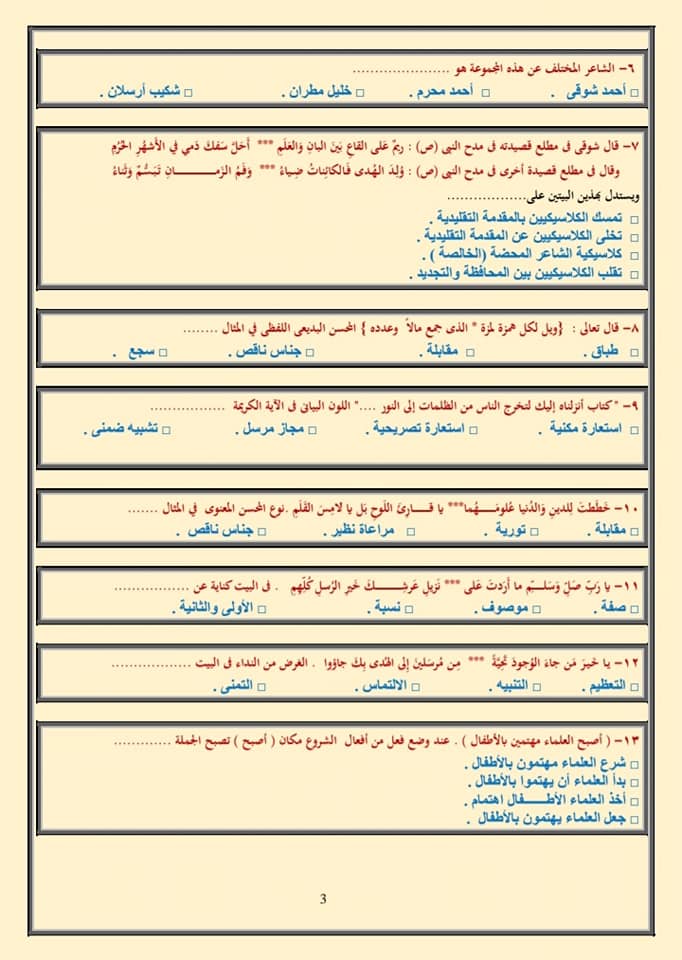 ٦- الشاعر المختلف عن هذه المجموعة هو ......................
□ أحمد شوقى . □ أحمد محرم . □ خليل مطران . □ شكيب أرسلان .
٧- قال شوقى فى مطلع قصيدته فى مدح النبى (ص) : ريمٌ عَلى القاعِ بَينَ البانِ وَالعَلَمِ *** أَحَلَّ سَفكَ دَمي في الأَشهُرِ الحُرُمِ
وقال فى مطلع قصيدة أخرى فى مدح النبى (ص) : وُلِدَ الهُدى فَالكائِناتُ ضِياءُ *** وَفَمُ الزَّمـــــــــــانِ تَبَسُّمٌ وَثَناءُ
ويستدل بهذين البيتين على..................
□ تمسك الكلاسيكيين بالمقدمة التقليدية .
□ تخلى الكلاسيكيين عن المقدمة التقليدية .
□ كلاسيكية الشاعر المحضة (الخالصة ) .
□ تقلب الكلاسيكيين بين المحافظة والتجديد .
٨- قال تعالى : {ويل لكل همزة لمزة * الذى جمع مالاً وعدده } المحسن البديعى اللفظى في المثال ........
□ طباق . □ مقابلة . □ جناس ناقص . □ سجع .
٩- "كتاب أنزلناه إليك لتخرج الناس من الظلمات إلى النور ...." اللون البيانى فى الآية الكريمة .................
□ استعارة مكنية . □ استعارة تصريحية . □ مجاز مرسل . □ تشبيه ضمنى .
١٠- خَطَطتَ لِلدينِ وَالدُنيا عُلومَـــــهُما*** يا قـــــارِئَ اللَوحِ بَل يا لامِسَ القَلَمِ .نوع المحسن المعنوى في المثال .......
□ مقابلة . □ تورية . □ مراعاة نظير . □ جناس ناقص .
١١- يا رَبِّ صَلِّ وَسَلـــِّم ما أَرَدتَ عَلى *** نَزيلِ عَرشِـــــــكَ خَيرِ الرُسلِ كُلِّهِمِ . فى البيت كناية عن .................
□ صفة . □ موصوف . □ نسبة . □ الأولى والثانية .
١٢- يا خَيرَ مَن جاءَ الوُجودَ تَحِيَّةً *** مِن مُرسَلينَ إِلى الهُدى بِكَ جاؤوا . الغرض من النداء فى البيت ..................
□ التعظيم . □ التنبيه . □ الالتماس . □ التمنى .
١٣- ( أصبح العلماء مهتمين بالأطفال ) . عند وضع فعل من أفعال الشروع مكان ( أصبح ) تصبح الجملة .............
□ شرع العلماء مهتمون بالأطفال .
□ بدأ العلماء أن يهتموا بالأطفال .
□ أخذ العلماء الأطـــــفال اهتمام .
□ جعل العلماء يهتمون بالأطفال .
3